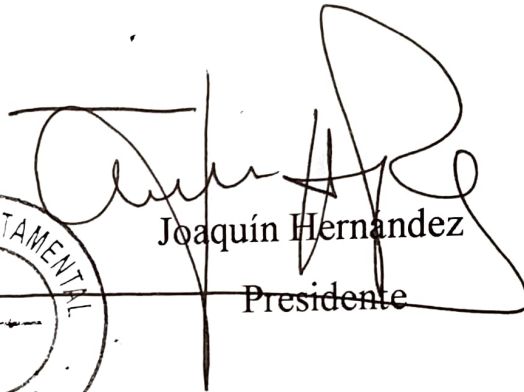 Joaquín Hernández
Presidente
TAMENTAL